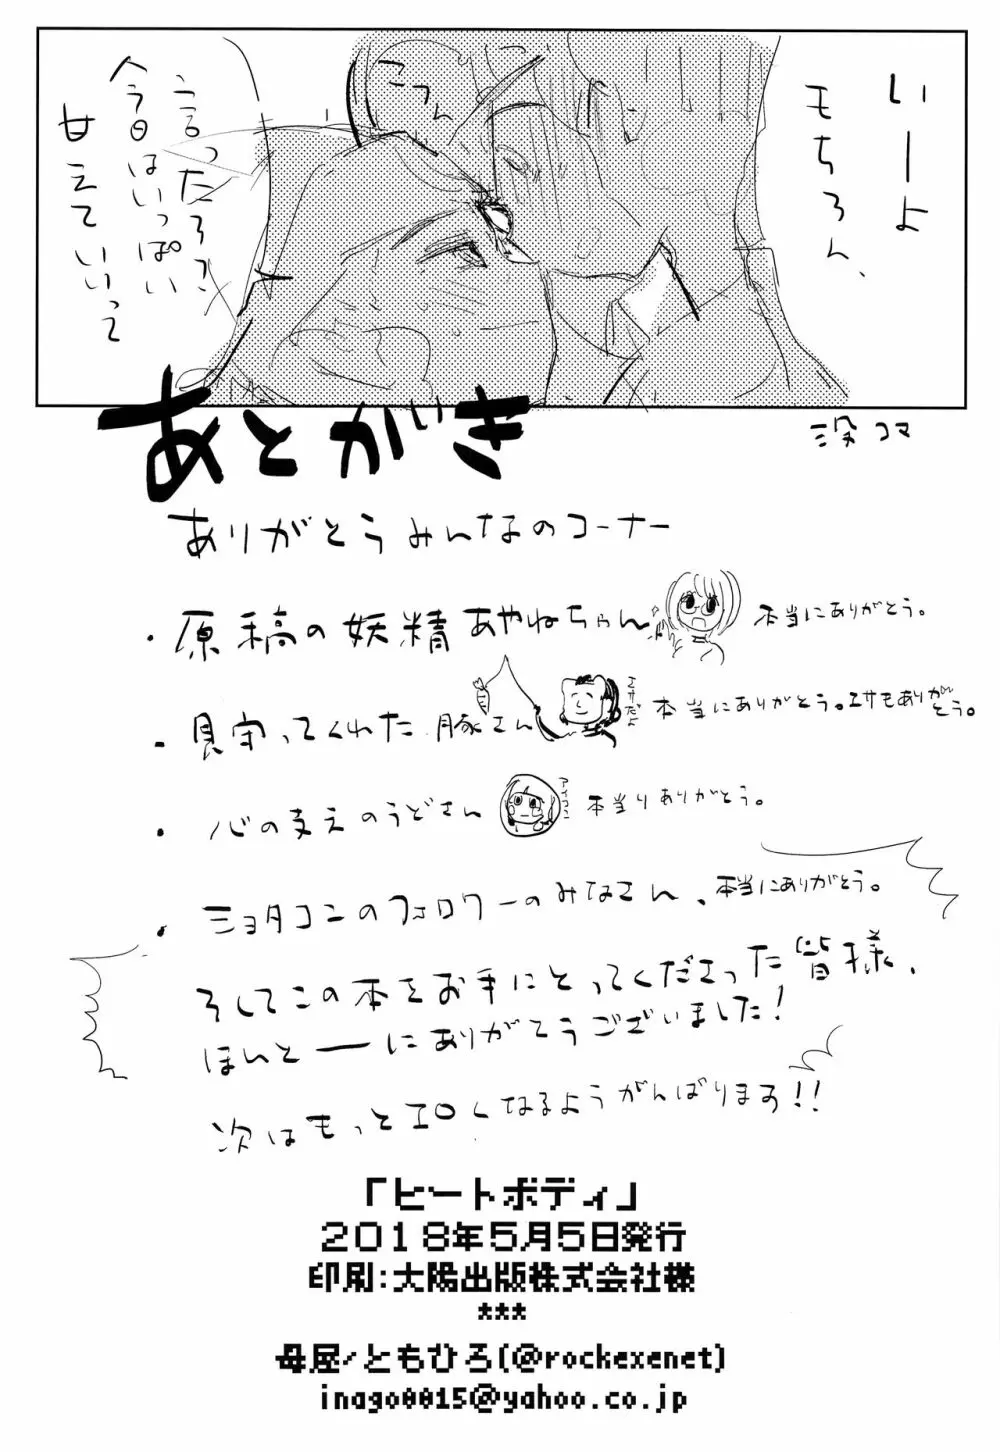 いーよ
もちろん、
こつん
言ったろ?
今日はいっぱい
甘えていいって
没コマ
あとがき
ありがとうみんなのコーナー
・原稿の妖精あやねちゃん 本当にありがとう。
・見守ってくれた豚さん エサだよ 本当にありがとう。エサもありがとう。
・心の支えのうどさん アイコン 本当りありがとう。
・ショタコンのフォロワーのみなさん、本当にありがとう。
そしてこの本をお手にとってくださった皆様、
ほんとーーにありがとうございました!
次はもっとエロくなるようがんばります!!
「ヒートボディ」
2018年5月5日発行
印刷:大陽出版株式会社様
***
母屋/ともひろ(@rockexenet)
inago0015@yahoo.co.jp